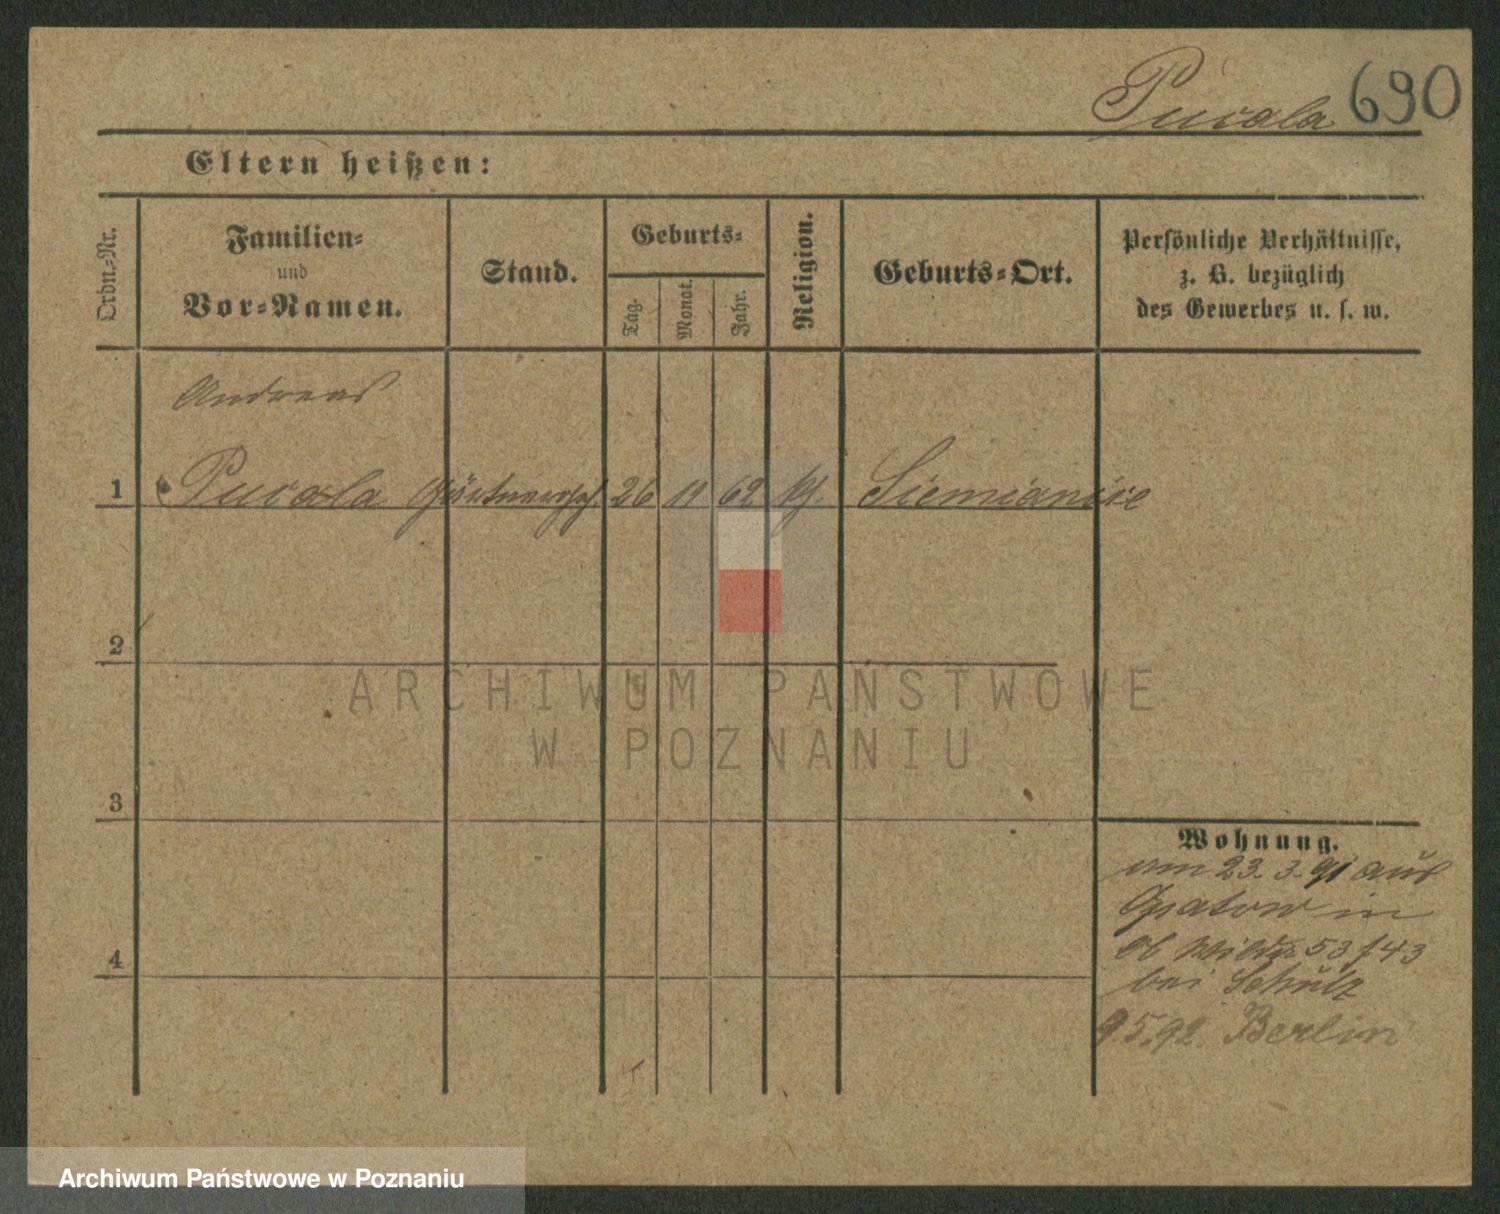 Pucala 690
Eltern heißen:
Ordn.-Nr.
Familien-
und
Vor-Namen.
Stand.
Geburts-
Tag.
Monat.
Jahr.
Religion.
Geburts-Ort.
Persönliche Verhältnisse,
z. B. bezüglich
des Gewerbes u. s. w.
Andreas
1 Pucala Gärtner 26 11 62 Siemianice
2
ARCHIWUM PAŃSTWOWE
W POZNANIU
3
Wohnung.
am 23. 3. 91 aus
Opatow in
Ob Wilda 53/43
bei Schulz
4
9.5.92. Berlin
Archiwum Państwowe w Poznaniu